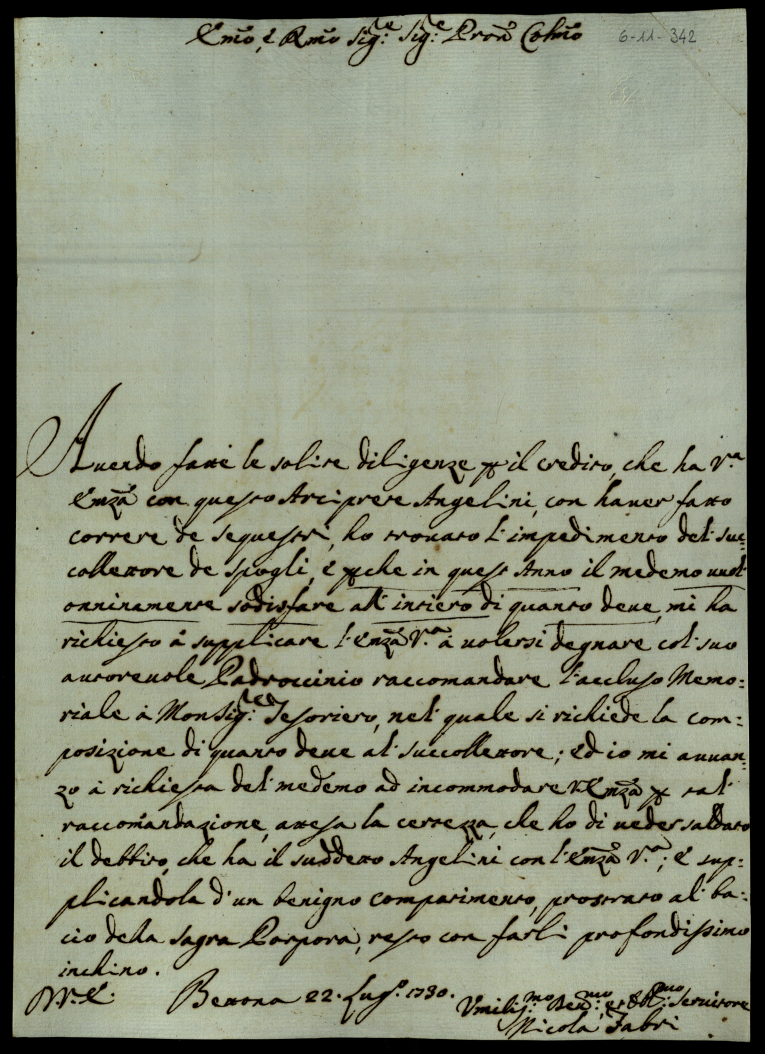 Emo, è Rmo Sig.re Sig.re Pron Colmo
6-11-342
Auendo fatte le solite diligenze p il credito, che ha V.a
Emza con questo Arciprete Angelini, con hauer fatto
correre de sequestri, ho trouato l'impedimento del suc=
collettore de spogli, è pche in quest'Anno il medemo uuol
onninamente sodisfare all'intiero di quanto deue, mi ha
richiesto à supplicare l'Emza V.a à uolersi degnare col suo
autoreuole Padroccinio raccomandare l'accluso Memo=
riale à Monsig.re Tesoriero, nel quale si richiede la com=
posizione di quanto deue al succollettore; Ed io mi auuan=
zo à richiesta del medemo ad incommodare V Emza p tal
raccomandazione, attesa la certezza, che ho di ueder saldato
il debbito, che ha il suddetto Angelini con l'Emza V.a; è sup=
plicandola d'un benigno compatimento, prostrato al ba=
cio della sagra Porpora, resto con farli profondissimo
inchino.
Bettona 22. Lug.o 1730.
Vmiliss.mo Deu.mo et Obl.mo Seruitore
Nicola Fabri